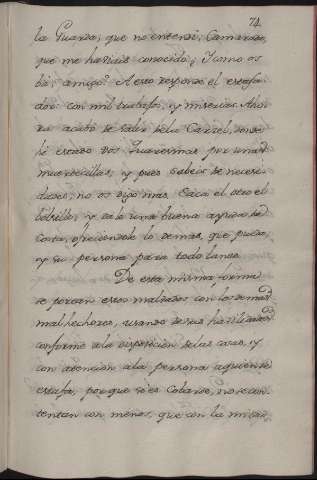 74
la Guarda, que no entendi, Camarada,
que me haviais conocido; Y como os
bá, amigo? A esto responde el estafa-
dor con mil trabajos, y miserias. Aho-
ra acabo de salir de la Carzel, donde
hé estado dos Quaresmas por unas
muertecillas, y pues sabeis de necesi-
dades, no os digo mas. Saca el otro el
bolsillo, y dale una buena ayuda de
costa, ofreciendole lo demas, que pueda,
y su persona para todo lance.
De esta misma forma
se portan estos malvados con los demas
malhechores, usando de sus havilidades
conforme a la disposicion de las cosas, y
con atencion a la persona a quien se
estafa, porque si es Cobarde, no se con-
tentan con menos, que con la mitad,